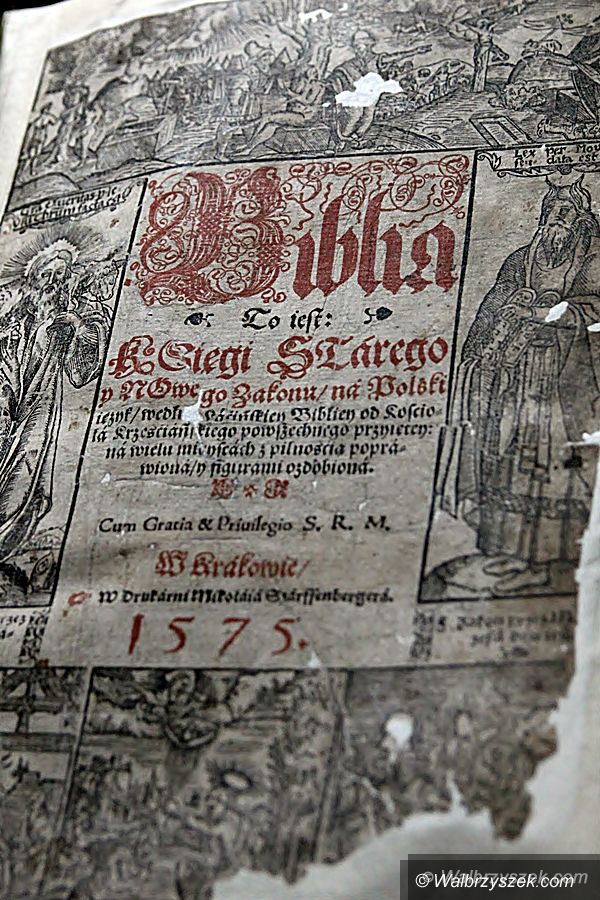 Lex per Moy
data est
Biblia
To iest:
KSiegi STárego
y NOwego Zakonu/ ná Polski
ięzyk/ wedlu Láćińskiey Bibliey od Kośćio-
łá Krześćiáńskiego powszechnego przyiętey:
ná wielu mieyscách z pilnośćią poprá-
wiona/ y figurámi ozdobiona.
Cum Gratia & Priuilegio S. R. M.
W Krákowie/
W Drukárni Mikołáiá Szárffenbergerá.
1575.
© Walbrzyszek.com
© Walbrzyszek.com